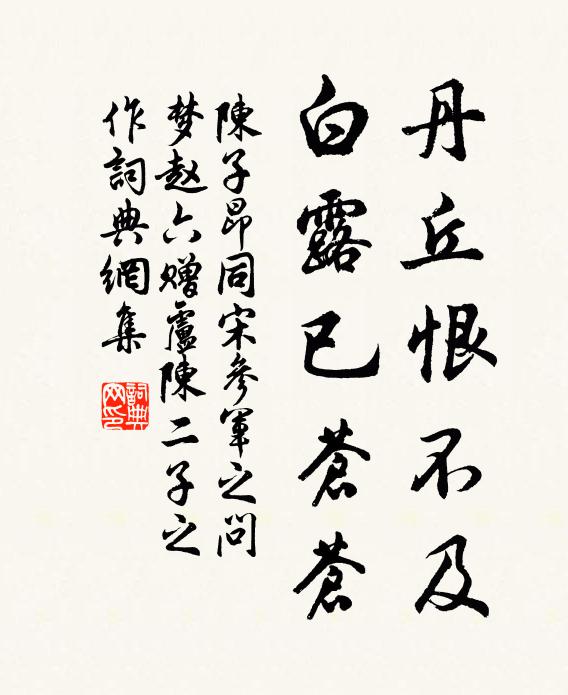 丹丘恨不及
白露已蒼蒼
陳子昂同宋參軍之問
梦赵六赠盧陳二子之
作詞典網集
詞典
网印